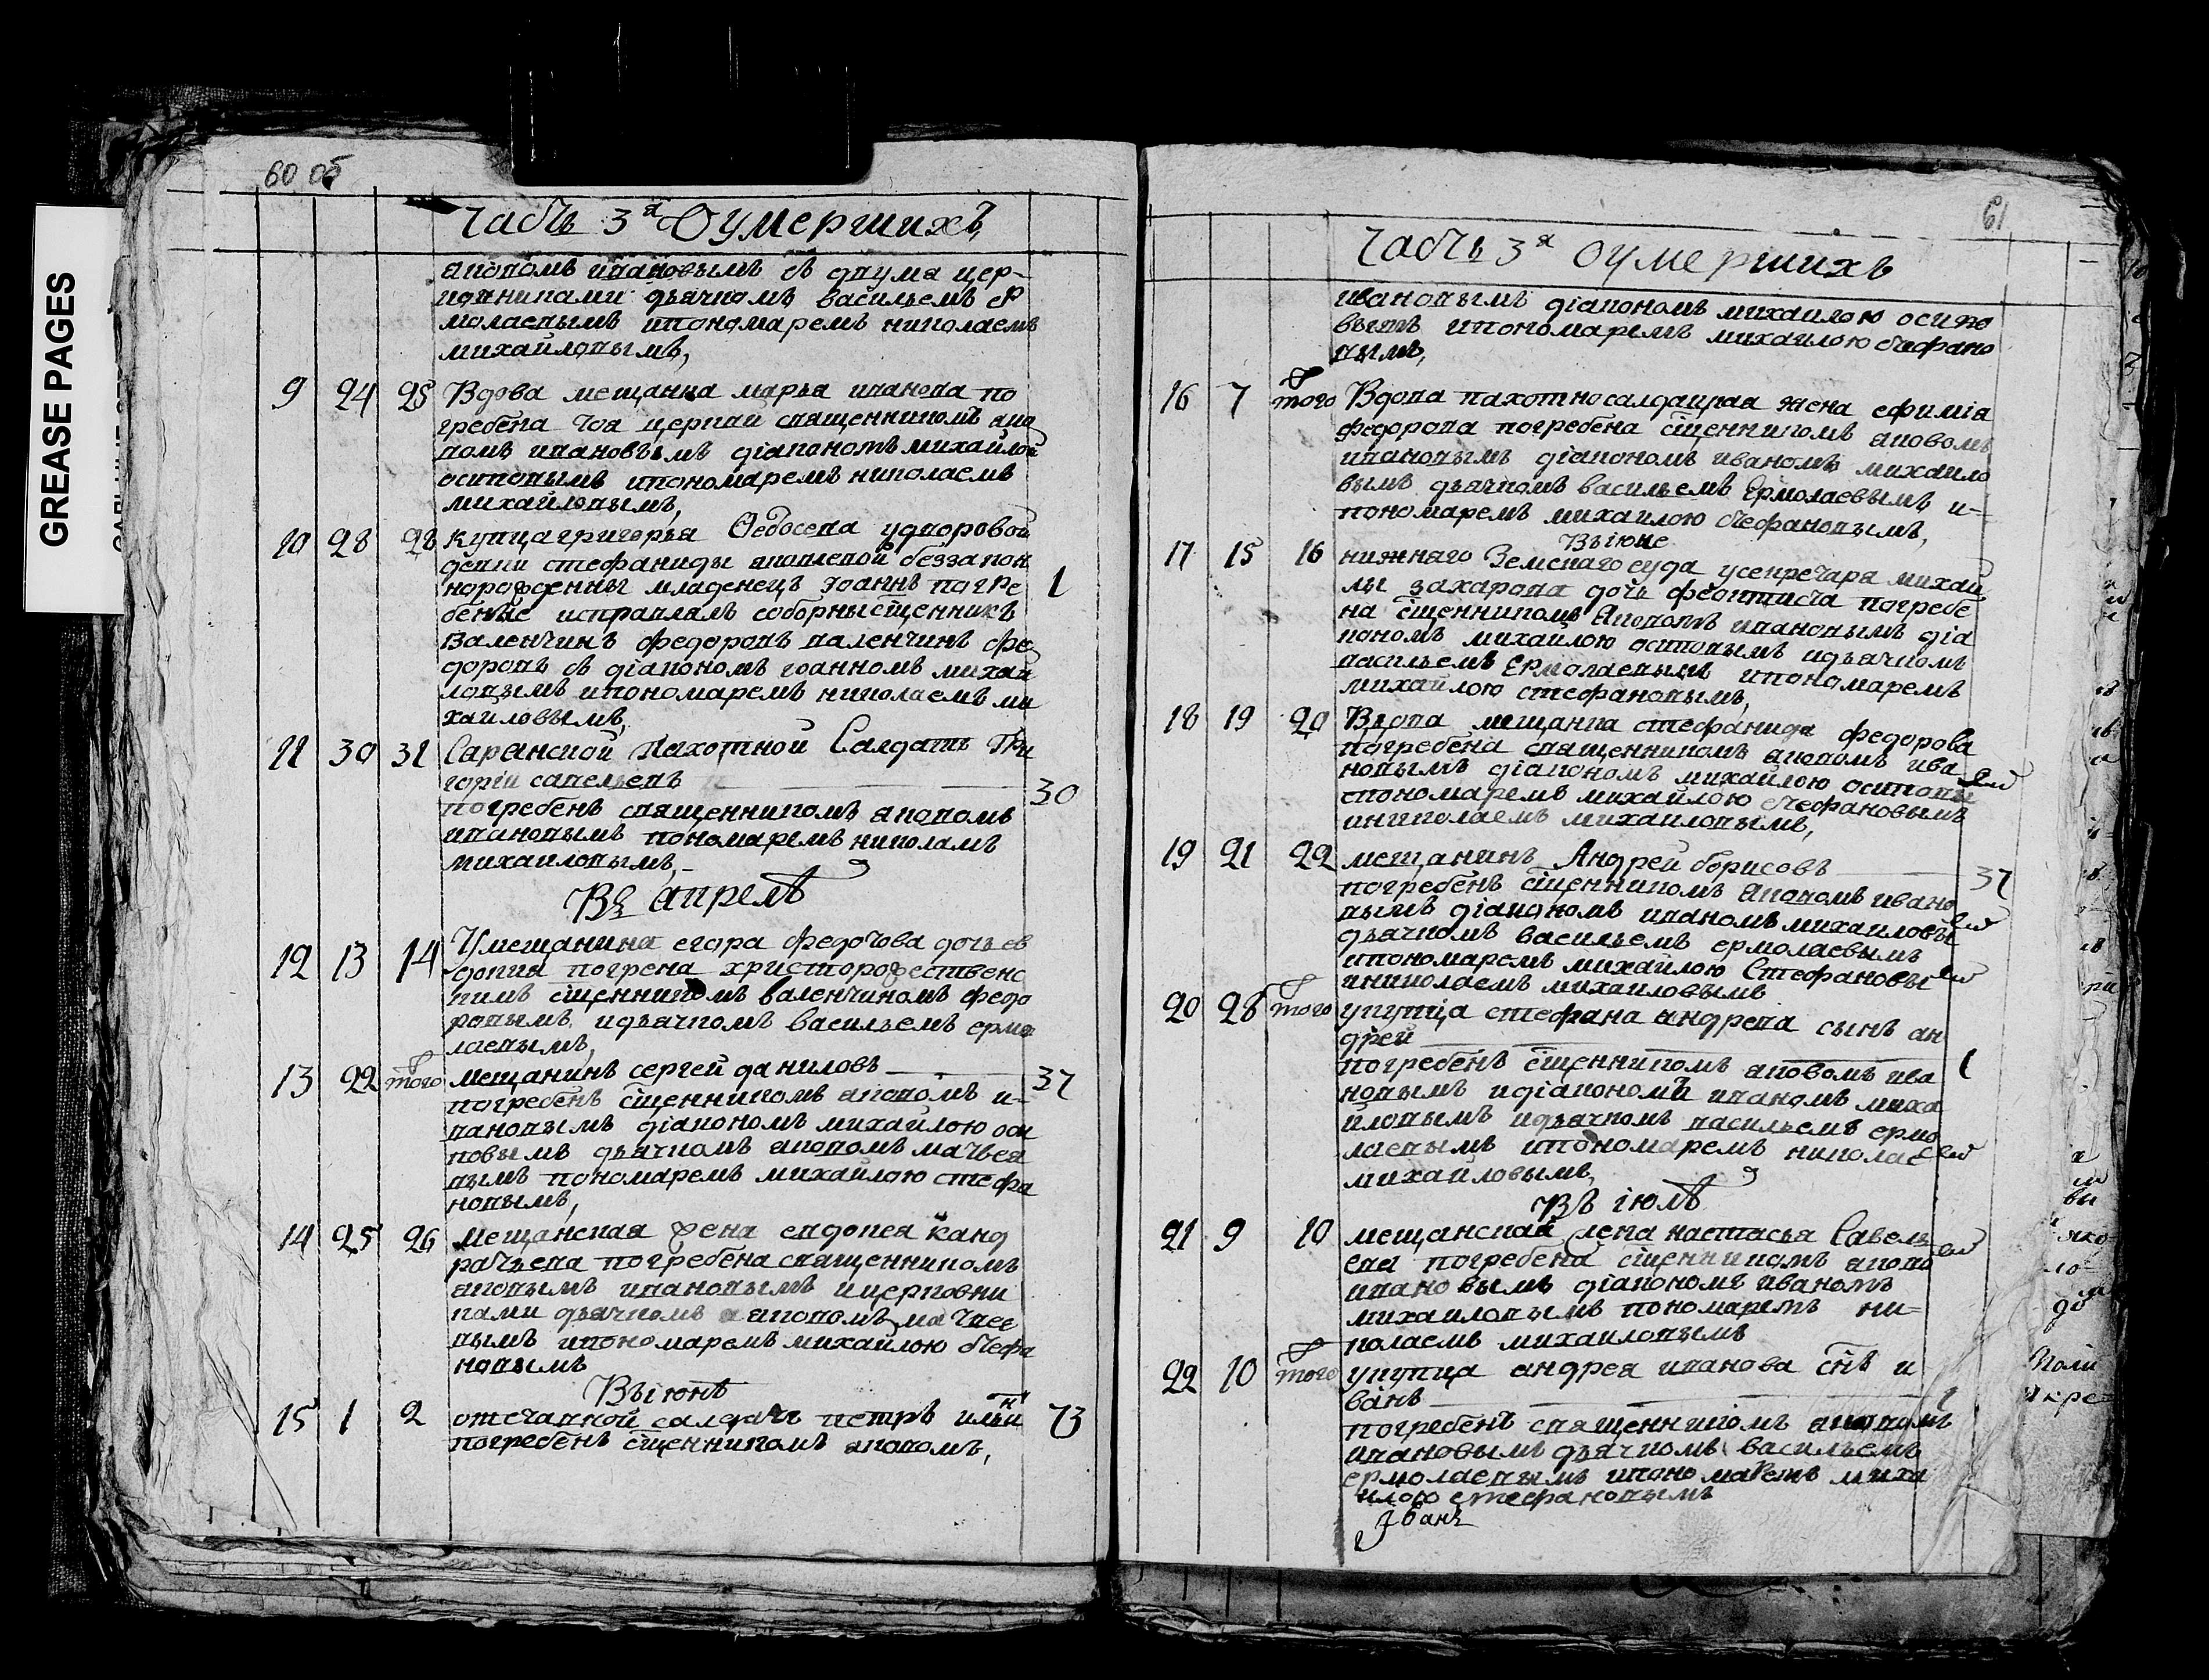 60 об
часть 3я О умершихъ
агапомъ ивановымъ съ двума цер-
ковниками дьячкомъ васильемъ ер
молаевымъ ипономаремъ николаемъ
михайловымъ,
9 24 25 Вдова мещанка марья иванова по
гребена тоя церкви священникомъ ага
помъ ивановымъ діакономъ михайлой
осиповымъ ипономаремъ николаемъ
михайловымъ,
10 28 28 купца григорья Ѳедосеева
девки стефаниды яковлевой беззакон
норожденны младенецъ Іоаннъ погре 1
бение исправлялъ соборны сщенникъ
Валентинъ федоровъ валентинъ фе
доровъ съ діакономъ іоанномъ михай
ловымъ ипономаремъ николаемъ ми
хаиловымъ,
11 30 31 Саранской Пахотной Салдатъ Гри
горіи савельевъ 30
погребенъ священникомъ агапомъ
ивановымъ пономаремъ николамъ
михаиловымъ,
Въ апрелѣ
12 13 14 Умещанина егора федотова дочь ев
докия погрена христорождественс
кимъ сщенникомъ валентиномъ федо
ровымъ идьячкомъ васильемъ ермо
лаевымъ,
13 22 того мещанинъ сергей даниловъ 37
погребенъ сщенникомъ агапомъ и-
вановымъ діакономъ михайлою оси
повымъ дьячкомъ агапомъ матвеи
вымъ пономаремъ михайлою стефа
новымъ,
14 25 26 мещанская жена евдокея канд
ратьева погребена священникомъ
агапымъ ивановымъ ицерковни
ками дьячкомъ агапомъ матвее
вымъ ипономаремъ михайлою стефа
новымъ
Въ іюнѣ
15 1 2 отставной салдатъ петръ ильи 73
погребенъ сщенникомъ агапомъ,
61
часть 3я О умершихъ
ивановымъ діакономъ михаилою осипо
вымъ ипономаремъ михаилою стефано
вымъ,
16 7 того Вдова пахотносалдацкая жена ефимія
федорова погребена сщенникомъ агапомъ
ивановымъ діакономъ иваномъ михаило
вымъ дьячкомъ васильемъ ермолаевымъ и-
пономаремъ михаилою стефановымъ,
Въ іюне
17 15 16 нижняго Земскаго суда усекретаря михаи
лы захарова дочь феоктиста погребе
на сщенникомъ Агапомъ ивановымъ діа
кономъ михаилою осиповымъ идьячкомъ
васильемъ Ермолаевымъ ипономаремъ
михайлою стефановымъ,
18 19 20 Вдова мещанка стефанида федорова
погребена священникомъ агапомъ ива
новымъ діакономъ михаилою осиповы
спономаремъ михайлою стефановымъ
иниколаемъ михаиловымъ,
19 21 22 мещанинъ Андрей борисовъ 37
погребенъ сщенникомъ агапомъ ивано
вымъ діакономъ иваномъ михаиловы
дьячкомъ васильемъ ермолаевымъ
ипономаремъ михайлою Стефановы
иниколаемъ михаиловымъ
20 28 того укупца стефана андрева сынъ ан
дрей
погребенъ сщенникомъ агапомъ ива 1
новымъ идіакономъ иваномъ миха
йловымъ идьячкомъ васильемъ ермо
лаевымъ ипономаремъ николае
михайловымъ,
Въ іюлѣ
21 9 10 мещанская жена настасья Савель
ева погребена сщенникомъ агапо
ивановымъ діакономъ иваномъ
михаиловымъ пономаремъ ни-
колаемъ михаиловымъ
22 10 того укупца андрея иванова снъ и
ванъ 1
погребенъ священникомъ агапомъ
ивановымъ дьячкомъ васильемъ
ермолаевымъ ипономаремъ миха
илою стефановымъ
Іванъ
GREASE PAGES